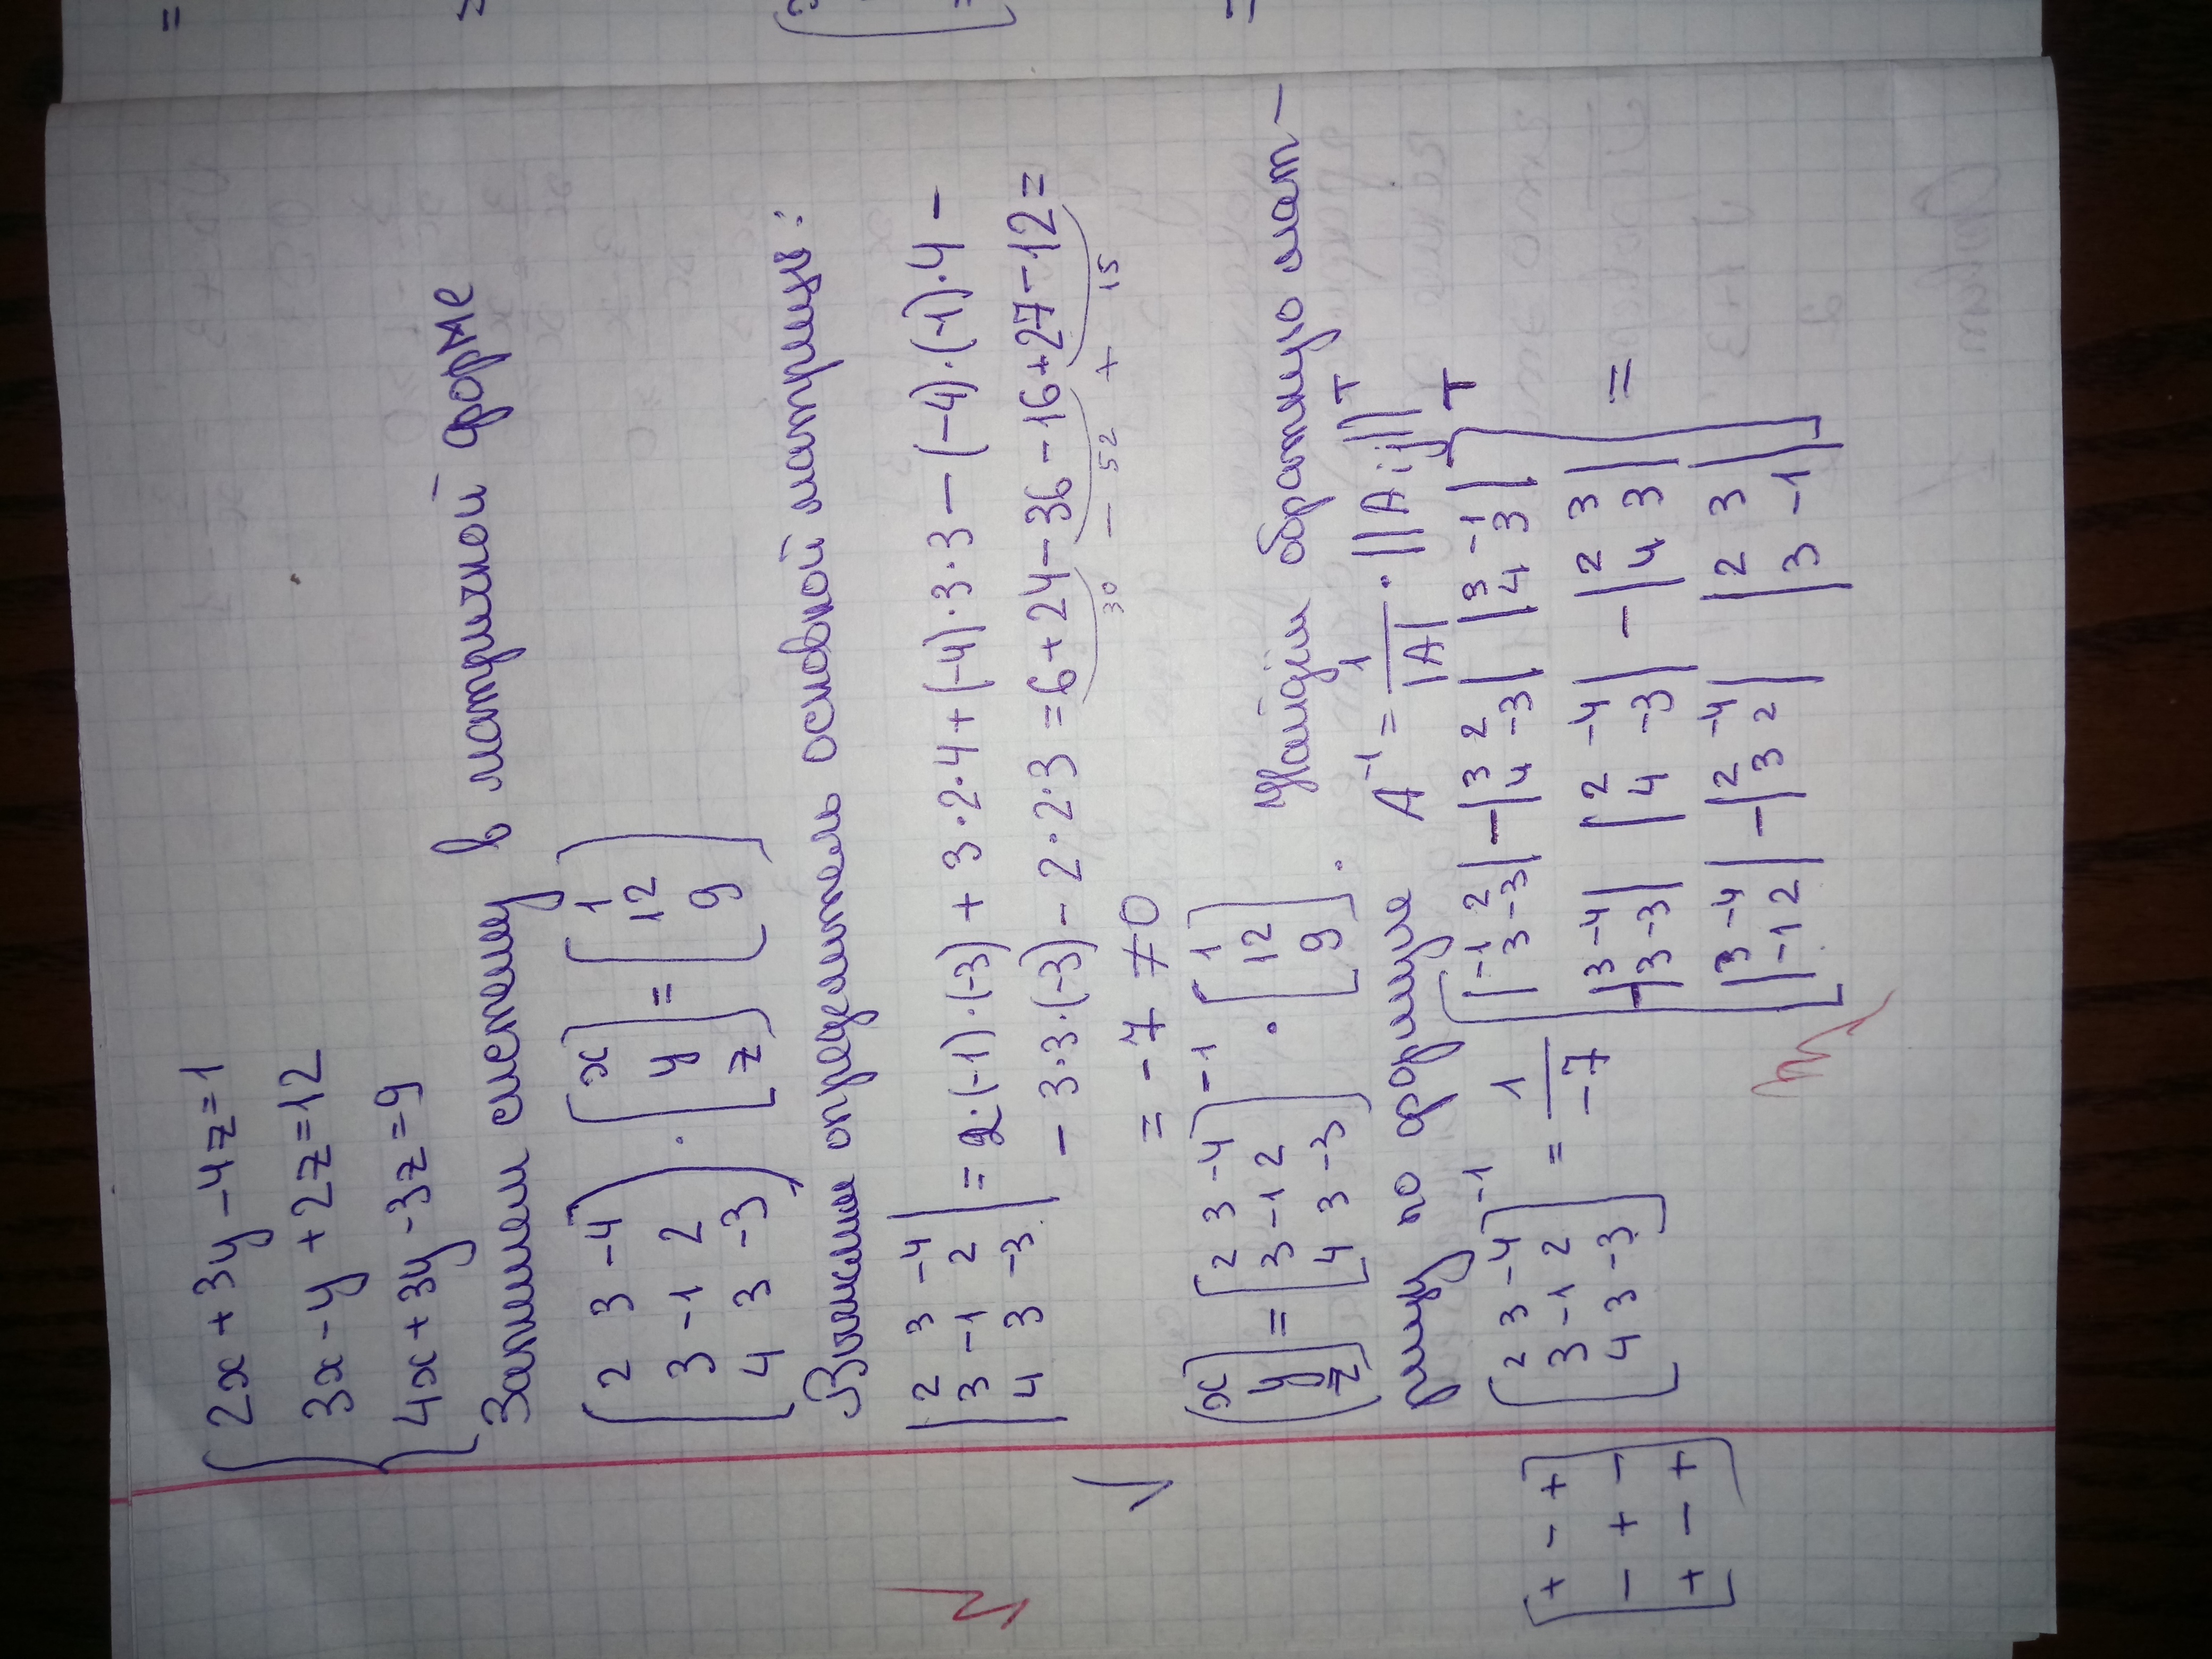 2x + 3y - 4z = 1
3x - y + 2z = 12
4x + 3y - 3z = 9
Запишем систему в матричной форме
2 3 -4
3 -1 2
4 3 -3
·
x
y
z
=
1
12
9
Вычислим определитель основной матрицы:
2 3 -4
3 -1 2
4 3 -3
= 2·(-1)·(-3) + 3·2·4 + (-4)·3·3 - (-4)·(-1)·4 -
- 3·3·(-3) - 2·2·3 = 6 + 24 - 36 - 16 + 27 - 12 =
30 - 52 + 15
= -7 ≠ 0
(x y z) = [2 3 -4; 3 -1 2; 4 3 -3]⁻¹ · [1 12 9]. Найдём обратную мат-
рицу по формуле A⁻¹ = 1/|A| · ||Aij||ᵀ
[2 3 -4; 3 -1 2; 4 3 -3]⁻¹ = 1/-7
|-1 2; 3 -3| -|3 2; 4 -3| |3 -1; 4 3|
-|3 -4; 3 -3| |2 -4; 4 -3| -|2 3; 4 3|
|3 -4; -1 2| -|2 -4; 3 2| |2 3; 3 -1|
T =
+ - +
- + -
+ - +